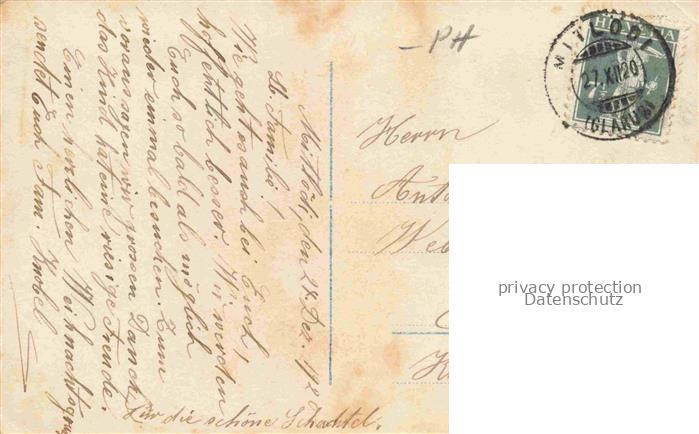 Mitlödi, den 28. Dez. 192
Lb. Familie!
Wie geht es auch bei Euch,
hoffentlich besser. Wir werden
Euch so bald als möglich
wieder einmal besuchen. Zum
voraus sagen wir grossen Dank,
das Kind hat eine riesige Freude.
Einen herlichen Weihnachtsgruss
sendet Euch Fam. Knobel
Für die schöne Schachtel.
– PH
HELVETIA
MITLÖDI
27.XII.20
(GLARUS)
Herrn
privacy protection
Datenschutz